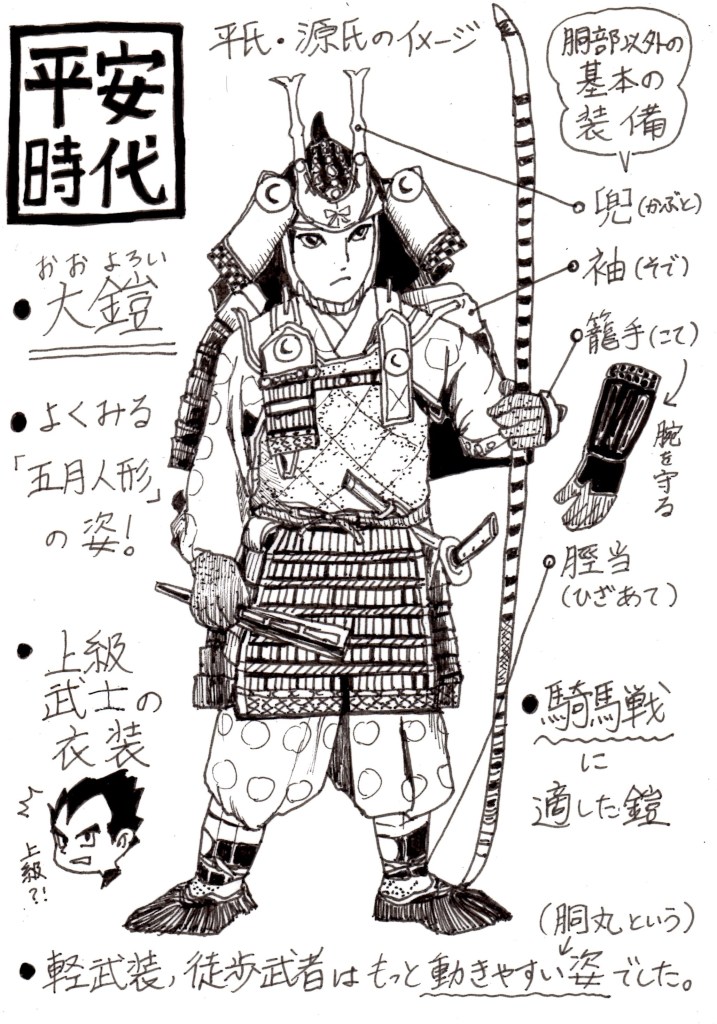 平安
時代
平氏・源氏のイメージ
胴部以外の
基本の
装備
兜(かぶと)
袖(そで)
籠手(こて)
腕を守る
脛当
(ひざあて)
おおよろい
大鎧
よくみる
「五月人形」
の姿!
上級
武士の
衣装
上級?!
騎馬戦
に
適した鎧
(胴丸という)
軽武装,徒歩武者はもっと動きやすい姿でした。